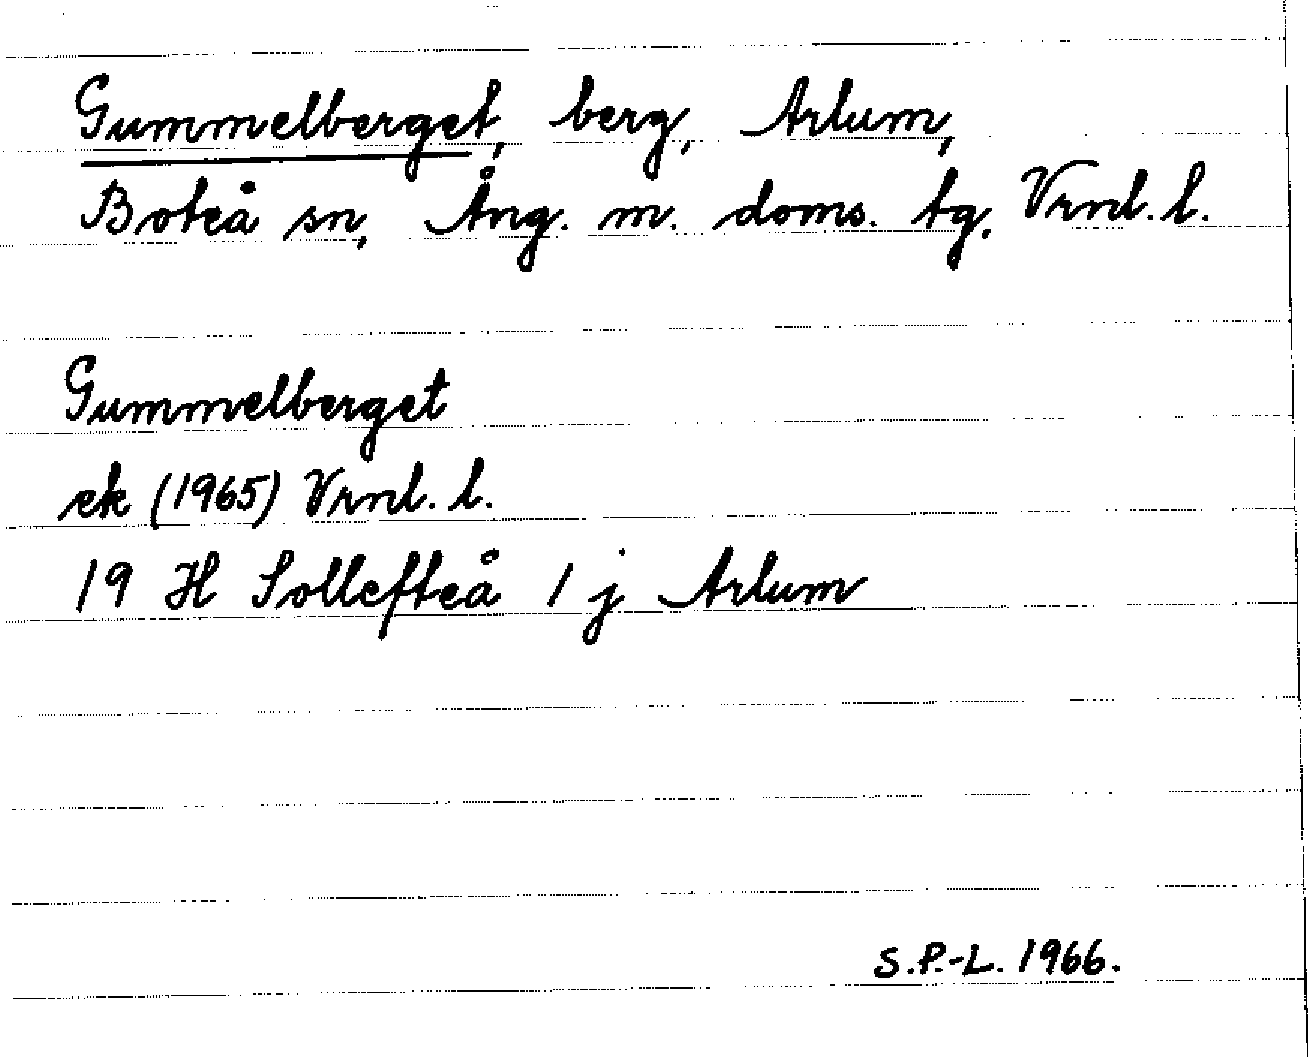 Gummelberget, berg, Arlum,
Boteå sn, Ång. m. doms. tg. Vrnl. l.
Gummelberget
ek (1965) Vrnl. l.
19 H Sollefteå 1 j Arlum
S.P.-L. 1966.